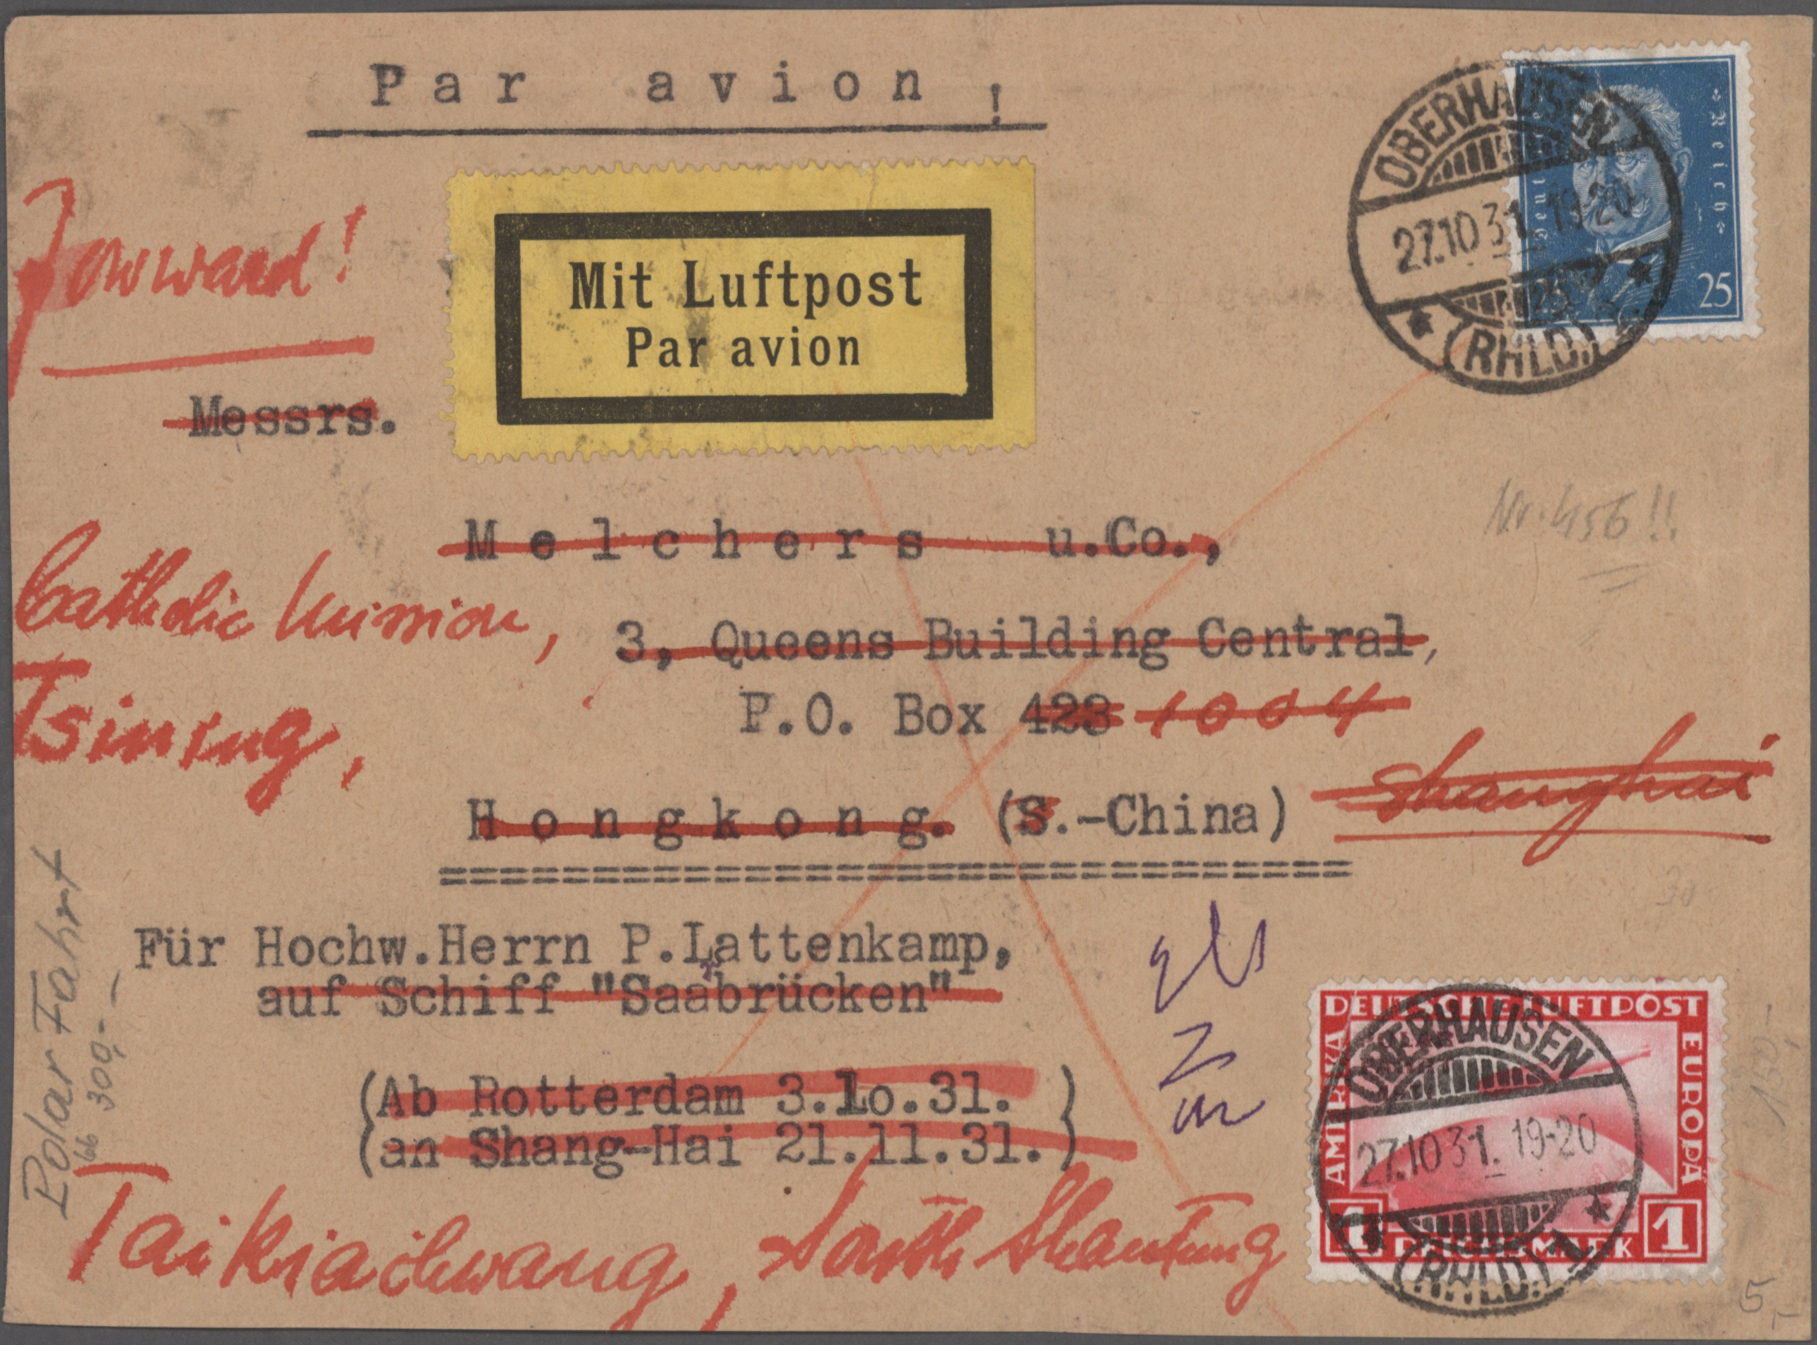 Par avion!
Mit Luftpost
Par avion
OBERHAUSEN
27.10 31. 19-20
(RHLD.)
Reich
25
Forward!
Messrs.
Nr. 456!!
Melchers u.Co.,
Catholic Mission,
3, Queens Building Central,
Tsining,
P.O. Box 423 1004
Shanghai
Hongkong. (S.-China)
==============================
30
Für Hochw.Herrn P.Lattenkamp,
auf Schiff "Saabrücken"
(Ab Rotterdam 3.10.31. )
(an Shang-Hai 21.11.31.)
Polar Fahrt
66 300,-
Taikiachwang, South Shantung
DEUTSCHE LUFTPOST
AMERIKA
EUROPA
OBERHAUSEN
27.10 31. 19-20
1 REICHSMARK 1
(RHLD.)
100,-
5,-